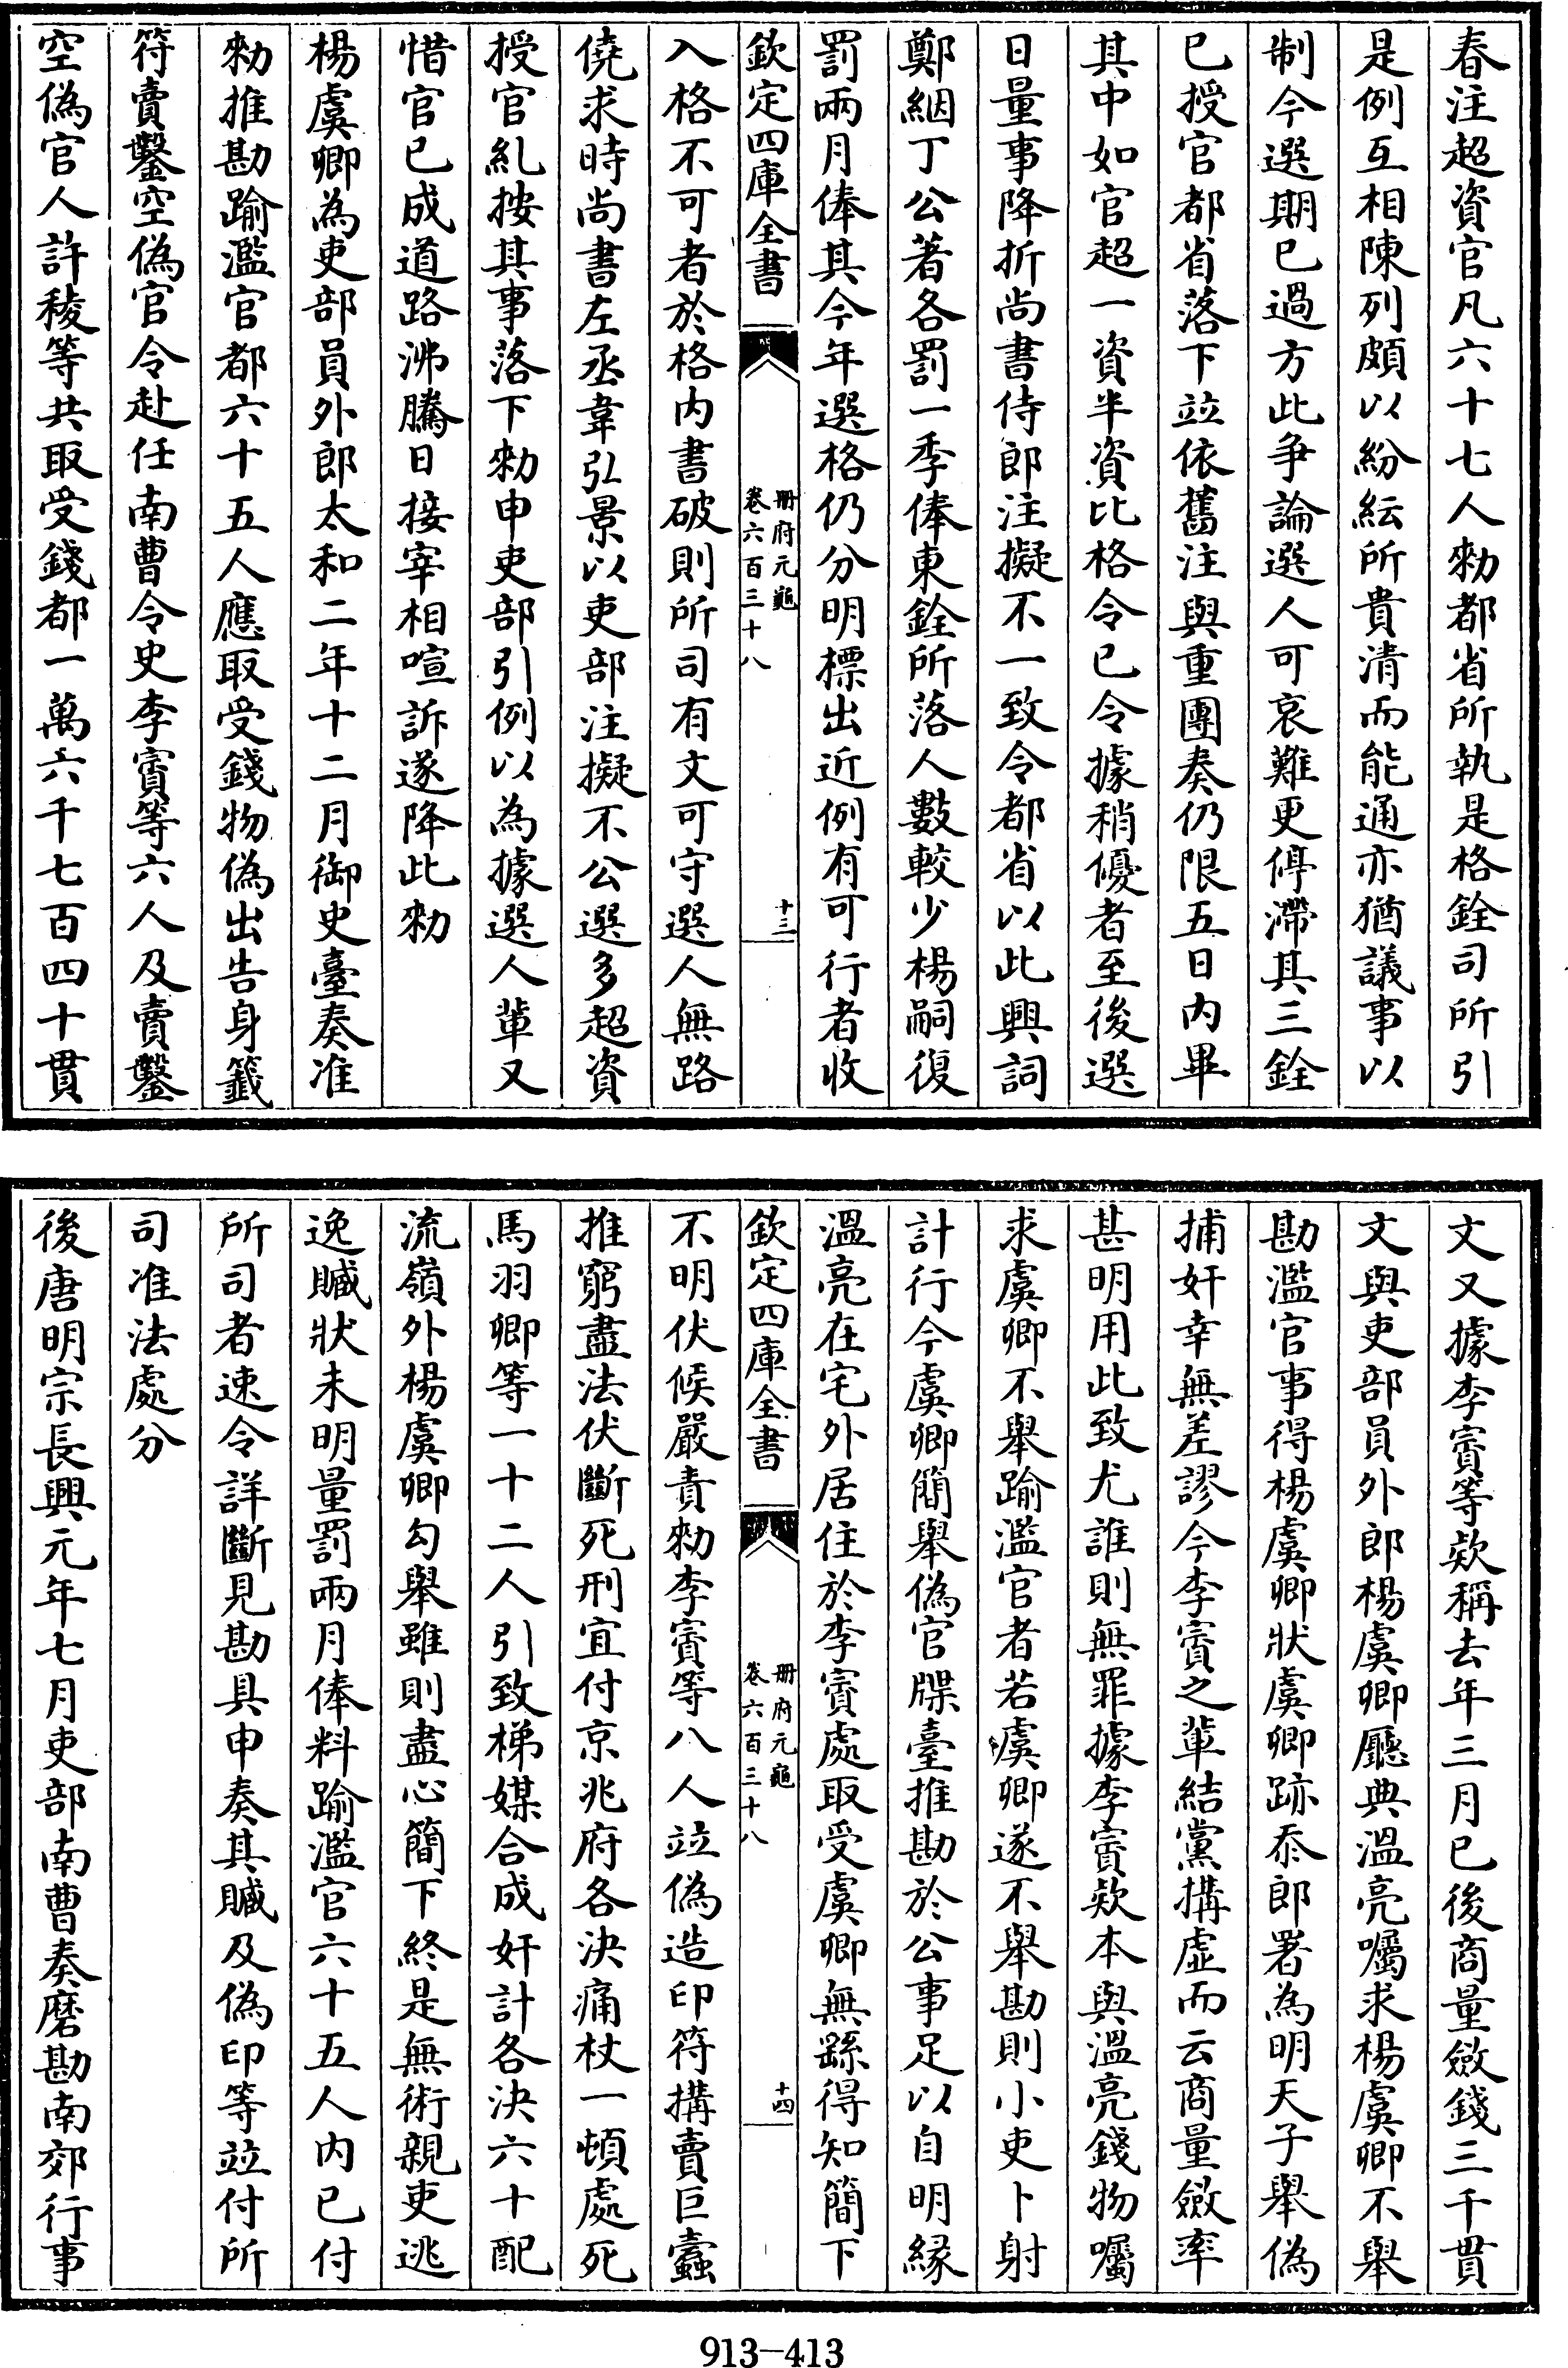 春注超資官凡六十七人勑都省所執是格銓司所引
是例互相陳列頗以紛紜所貴清而能通亦猶議事以
制今選期已過方此爭論選人可哀難更停滯其三銓
已授官都省落下竝依舊注與重團奏仍限五日内畢
其中如官超一資半資比格令已令據稍優者至後選
日量事降折尚書侍郎注擬不一致令都省以此興詞
鄭絪丁公著各罰一季俸東銓所落人數較少楊嗣復
罰兩月俸其今年選格仍分明標出近例有可行者收
欽定四庫全書
冊府元龜
卷六百三十八
十三
入格不可者於格内書破則所司有文可守選人無路
僥求時尚書左丞韋弘景以吏部注擬不公選多超資
授官糺按其事落下勑申吏部引例以為據選人輩又
惜官已成道路沸騰日接宰相喧訴遂降此勑
楊虞卿為吏部員外郎太和二年十二月御史臺奏准
勑推勘踰濫官都六十五人應取受錢物偽出告身籤
符賣鑿空偽官令赴任南曹令史李賨等六人及賣鑿
空偽官人許稜等共取受錢都一萬六千七百四十貫
文又據李賨等欵稱去年三月已後商量斂錢三千貫
文與吏部員外郎楊虞卿廳典溫亮囑求楊虞卿不舉
勘濫官事得楊虞卿狀虞卿跡忝郎署為明天子舉偽
捕奸幸無差謬今李賨之輩結黨搆虛而云商量斂率
甚明用此致尤誰則無罪據李賨欵本與溫亮錢物囑
求虞卿不舉踰濫官者若虞卿遂不舉勘則小吏卜射
計行今虞卿簡舉偽官牒臺推勘於公事足以自明緣
溫亮在宅外居住於李賨處取受虞卿無繇得知簡下
欽定四庫全書
冊府元龜
卷六百三十八
十四
不明伏候嚴責勑李賨等八人竝偽造印符搆賣巨蠹
推窮盡法伏斷死刑宜付京兆府各決痛杖一頓處死
馬羽卿等一十二人引致梯媒合成奸計各決六十配
流嶺外楊虞卿勾舉雖則盡心簡下終是無術親吏逃
逸贓狀未明量罰兩月俸料踰濫官六十五人内已付
所司者速令詳斷見勘具申奏其贓及偽印等竝付所
司准法處分
後唐明宗長興元年七月吏部南曹奏磨勘南郊行事
913-413